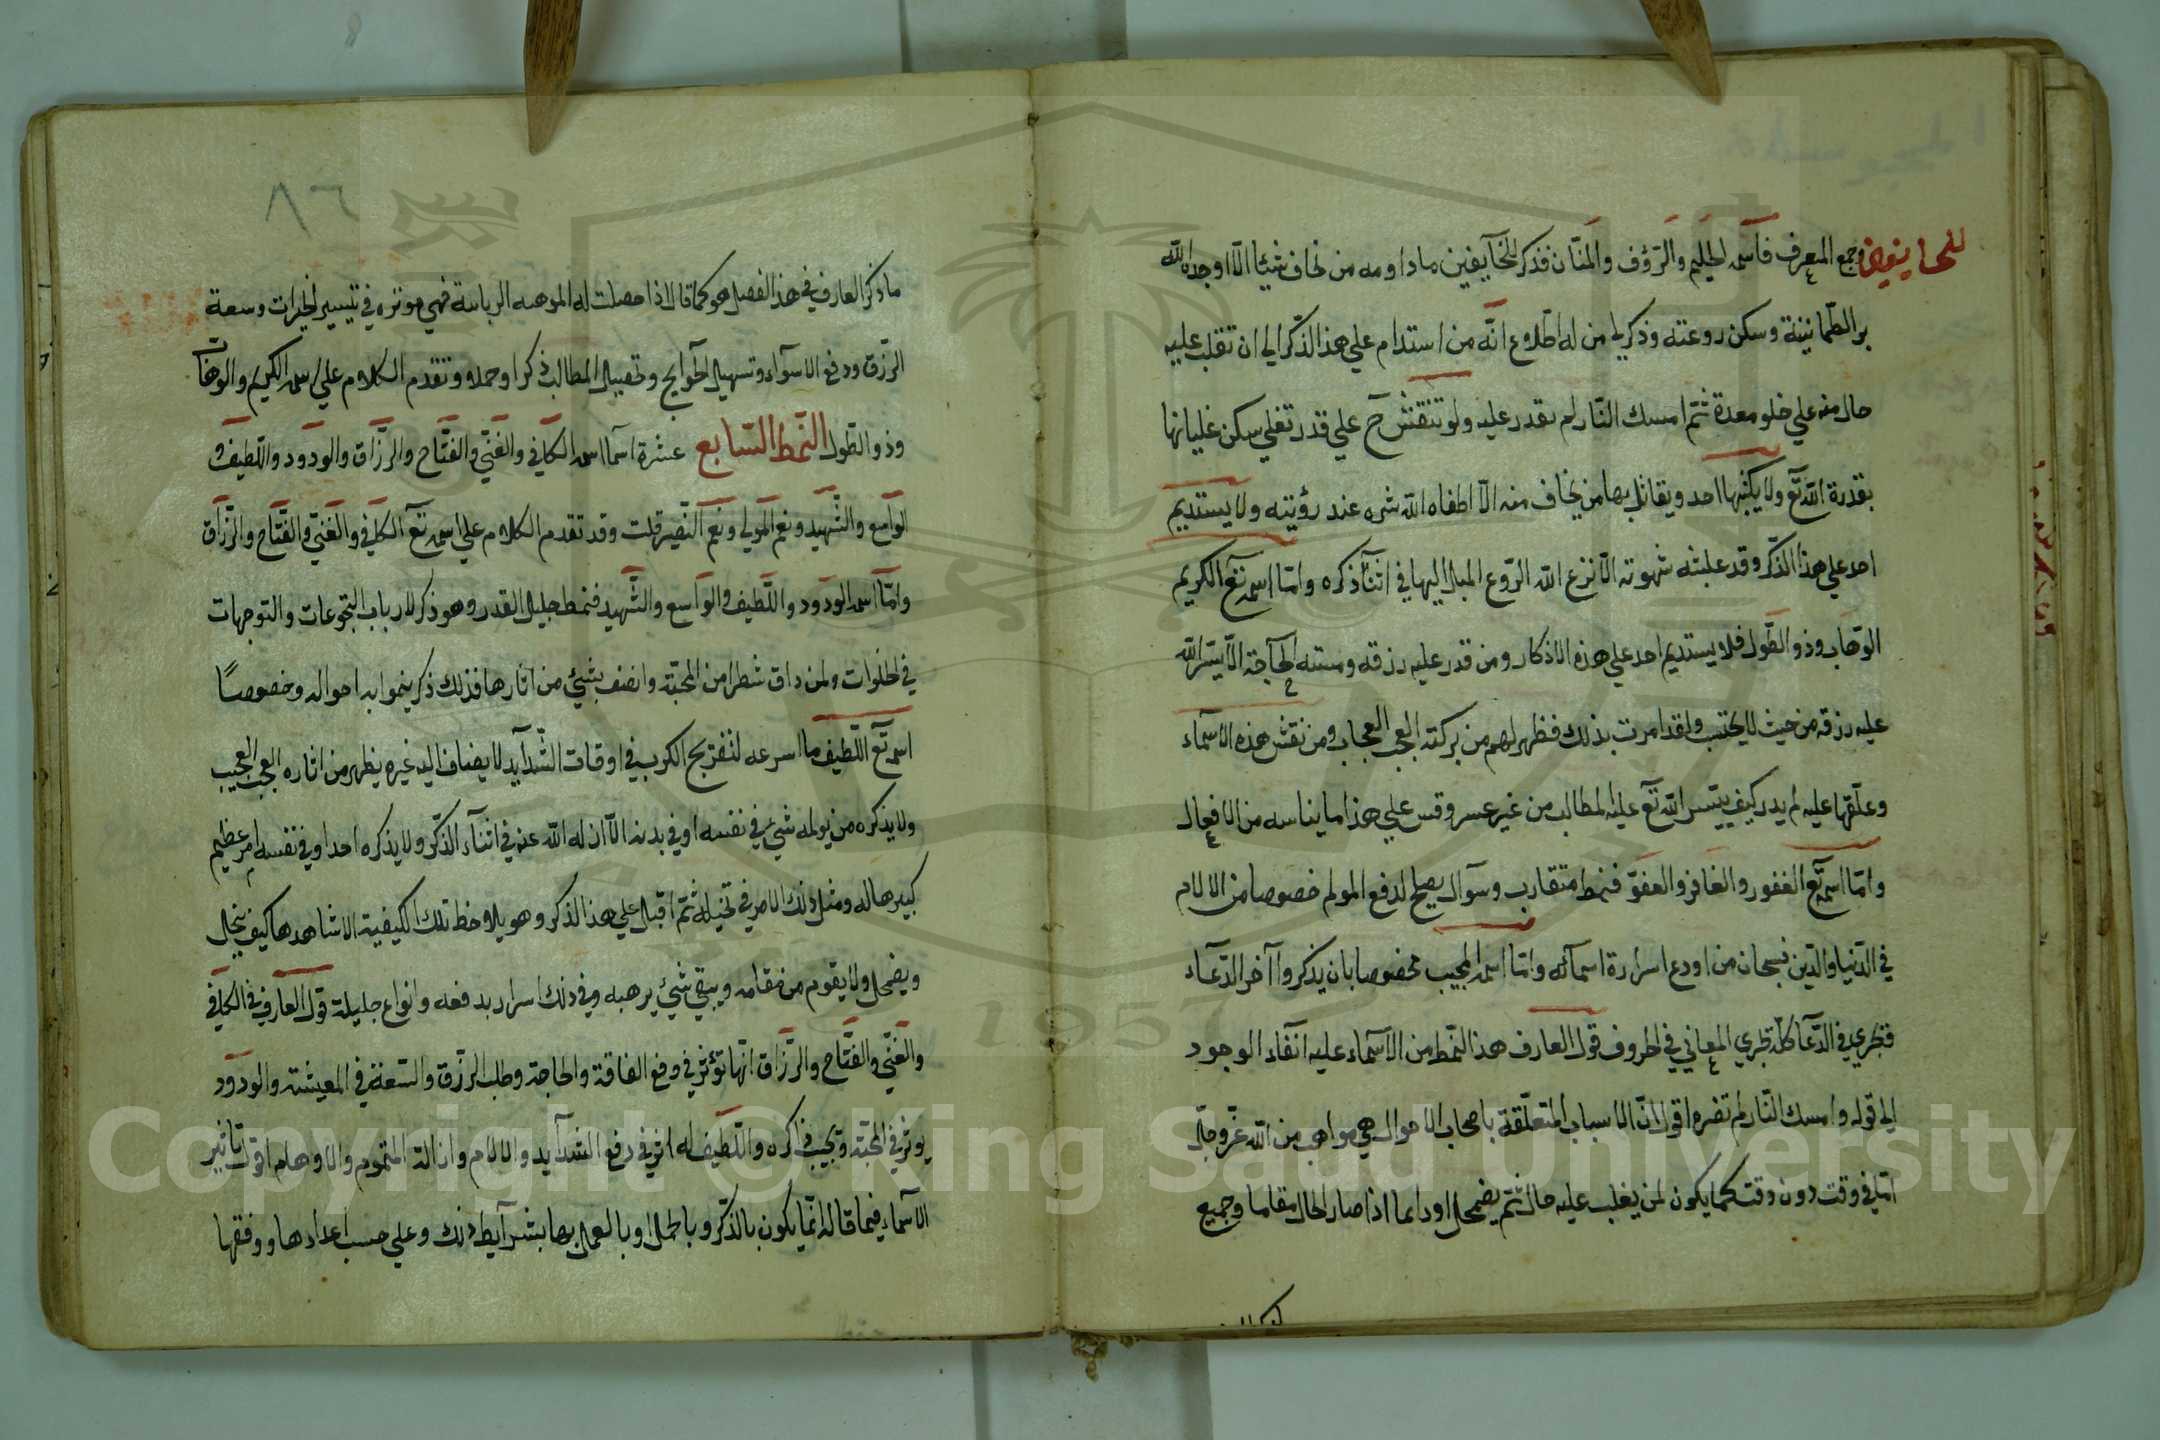 للخايفين وجع المعرف فاسمه الحليم والرؤف والمنان فذكر للخآيفين ما داومه من يخاف شيئا الا اوجده الله
بر الطمانينة وسكن روعته وذكر لمن له اطلاع انه من استدام علي هذا الذكر الي ان تقلب عليه
حال منه علي خلو معدة ثم امسك النار لم يقدر عليه ولو تنفش ح علي قدر تغلي سكن غليانها
بقدرة الله تع ولا يكتبها احد ويقابل بها من يخاف منه الا اطفاه الله شره عند رؤيته ولا يستديم
احد علي هذا الذكر وقد غلبته شهوته الا نزع الله الروع الميل اليها في اثنآ ذكره واما اسمه تع الكريم
الوهاب وذو الطول فلا يستديم احد علي هذه الاذكار ومن قدر عليه رزقه ومسته الحاجة الا يسر الله
عليه رزقه من حيث لا يحتسب ولقد امرت بذلك فظهر لهم من بركته العجب العجاب ومن نقش هذه الاسمآء
وعلقها عليه لم يدر كيف ييسر الله تع عليه المطالب من غير عسر وقس علي هذا ما يناسبه من الافعال
واما اسمه تع الغفور والغافر والعفو فنمط متقارب وسوال يصلح لدفع المولم خصوصا من الالام
في الدنيا والدين فسبحان من اودع اسراره اسمائه واما اسمه المجيب مخصوصا بان يذكر وا آخر الدعآء
فتجري في الدعآ كله تجري المعاني في الحروف قول العارف هذا النمط من الاسمآء عليه انفاد الوجود
الي قوله وامسك النار لم تضره اقول ان الاسباب المتعلقة باصحاب الاحوال هي مواهب من الله عز وجل
اما في وقت دون وقت كما يكون لمن يغلب عليه حال ثم يضمحل او دايما اذا صار الحال مقاما وجميع
٨٦
ما ذكر العارف في هذا الفصل هو كما قال اذا حصلت له الموهبه الربانية فهي موثره في تيسير الخيرات وسعة
الرزق ودفع الاسوآء وتسهيل الحوايج وتحصيل المطالب ذكرا وحملا وتقدم الكلام علي اسمه الكريم والوهاب
وذو الطول النمط السابع عشرة اسما اسمه الكافي والغني والفتاح والرزاق والودود واللطيف و
الواسع والشهيد ونعم المولي ونعم النصير قلت وقد تقدم الكلام علي اسمه تع الكافي والغني والفتاح والرزاق
واما اسمه الودود واللطيف والواسع والشهيد فنمط جليل القدر وهو ذكر لارباب التجوعات والتوجهات
في الخلوات ولمن ذاق شطرا من المحبة واتصف بشيئ من اثارها فذلك ذكر ينموا به احواله وخصوصا
اسمه تع اللطيف ما اسرعه لتفريج الكرب في اوقات الشدآيد لا يضاف اليه غيره يظهر من اثاره العجب العجيب
ولا يذكره من يولمه شيئ في نفسه او في بدنه الا ازاله الله عنه في اثنآء الذكر ولا يذكره احد او في نفسه امر عظيم
كبير هاله ومثل ذلك الامر في تخيله ثم اقبل علي هذا الذكر وهو يلاحظ تلك الكيفية الا شاهدها كيف ينحل
ويضمحل ولا يقوم من مقامه ويبقي شيئ يرهبه وفي ذلك اسرار بدفعه وانواع جليلة قول العارف في الكافي
والغني والفتاح والرزاق انها تؤثر في رفع الفاقة والحاجة وطلب الرزق والسعة في المعيشة والودود
يوثر في المحبة وتجيب ذاكره واللطيف له اثر في رفع الشدآيد والالام وازالة الهموم والاوهام اقول تاثير
الاسمآء فيما قاله انما يكون بالذكر وبالحمل او بالعمل بها بشرآيط ذلك وعلي حسب اعدادها ووفقها
Copyright © King Saud University
1957